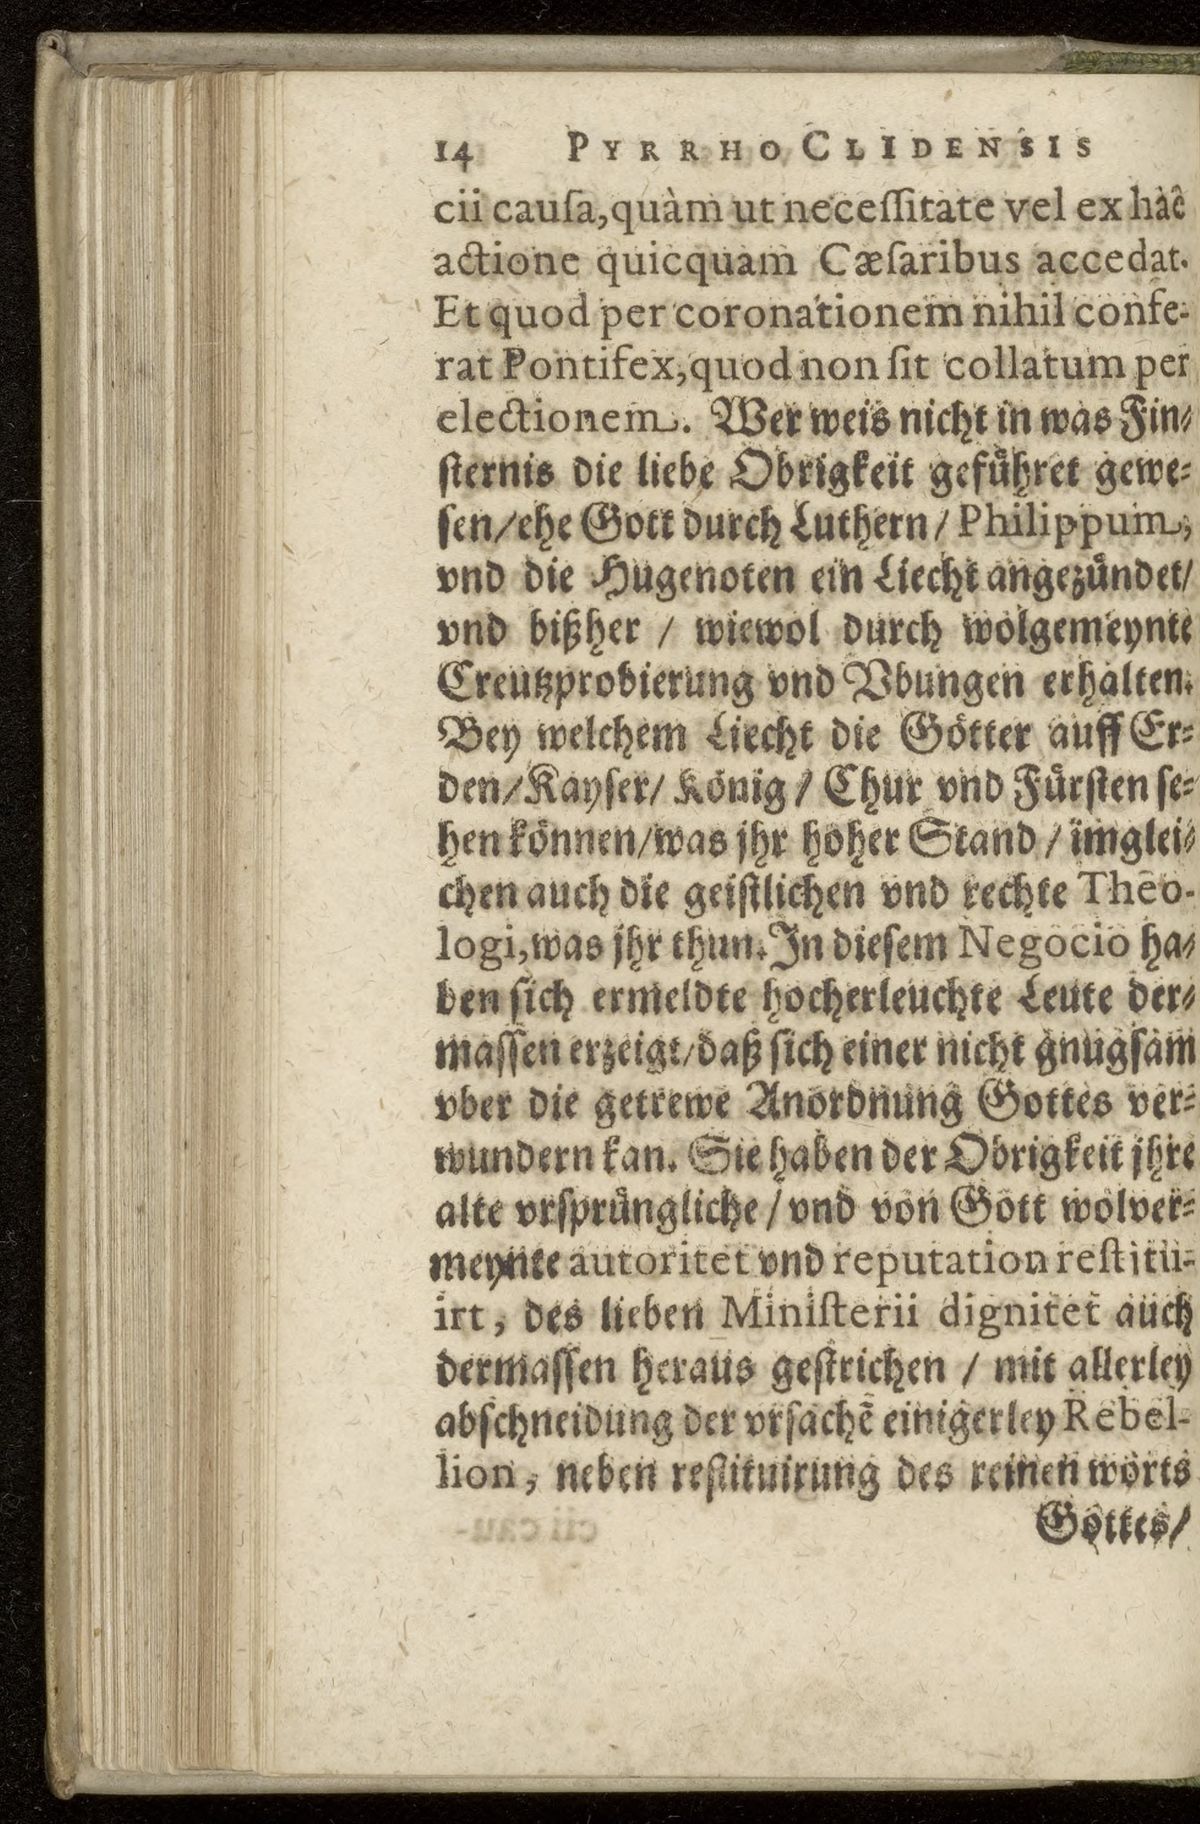 14 PYRRHO CLIDENSIS
cii cauſa, quàm ut neceſſitate vel ex hâc
actione quicquam Cæſaribus accedat.
Et quod per coronationem nihil confe-
rat Pontifex, quod non ſit collatum per
electionem. Wer weis nicht in was Fin-
ſternis die liebe Obrigkeit gefuͤhret gewe-
ſen/ ehe Gott durch Luthern/ Philippum,
vnd die Hugenoten ein Liecht angezuͤndet/
vnd bißher / wiewol durch wolgemeynte
Creutzprobierung vnd Vbungen erhalten.
Bey welchem Liecht die Goͤtter auff Er-
den/ Kayſer/ Koͤnig / Chur vnd Fuͤrſten ſe-
hen koͤnnen/ was jhr hoher Stand / imglei-
chen auch die geiſtlichen vnd rechte Theo-
logi, was jhr thun. In dieſem Negocio ha-
ben ſich ermeldte hocherleuchte Leute der-
maſſen erzeigt/ daß ſich einer nicht gnugſam
vber die getrewe Anordnung Gottes ver-
wundern kan. Sie haben der Obrigkeit jhre
alte vrſpruͤngliche / vnd von Gott wolver-
meynte autoritet vnd reputation reſtitu-
irt, des lieben Miniſterii dignitet auch
dermaſſen heraus geſtrichen / mit allerley
abſchneidung der vrſachẽ einigerley Rebel-
lion, neben reſtituirung des reinen worts
Gottes/